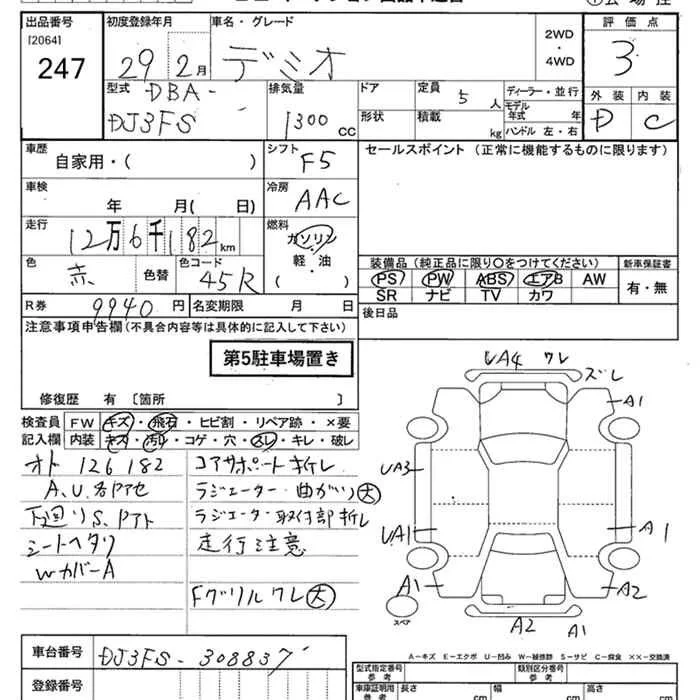 出品番号 初度登録年月 車名・グレード 評価点
[2064] 2WD
247 29 2月 デミオ ・ 3
4WD
型式 DBA- 排気量 ドア 定員 5 人 ディーラー・並行 外装 内装
DJ3FS 1300 cc 形状 積載 kg モデル年式 年 D C
ハンドル 左・右
車歴 シフト セールスポイント (正常に機能するものに限ります)
自家用・( ) F5
車検 冷房
年 月( 日) AAC
走行 燃料
12万6千182km ガソリン
・
色 色コード 軽・油 装備品 (純正品に限り○をつけてください) 新車保証書
赤 色替 45R ( ) PS PW ABS エアB AW 有・無
SR ナビ TV カワ
R券 9940 円 名変期限 月 日 後日品
注意事項申告欄(不具合内容等は具体的に記入して下さい)
第5駐車場置き
修復歴 有 〔箇所 〕
検査員 FW キズ・飛石・ヒビ割・リペア跡・×要
記入欄 内装 キズ・汚レ・コゲ・穴・スレ・キレ・破レ
オド 126182 コアサポート折レ
A、U、各Pアセ ラジエーター曲がり大
下廻りS、Pアト ラジエーター取付部折レ
シートヘタリ 走行注意
WカバーA
Fグリルワレ大
UA4 ワレ
ズレ
A1
UA3
UA1 A1
A1 A2
スペア
A2 A1
A－キズ E－エクボ U－凹ミ W－補修跡 S－サビ C－腐食 ××－交換済
車台番号 DJ3FS-308837
登録番号
型式指定番号 参考 類別区分番号 参考
車庫証明用 参考 長さ cm 幅 cm 高さ cm